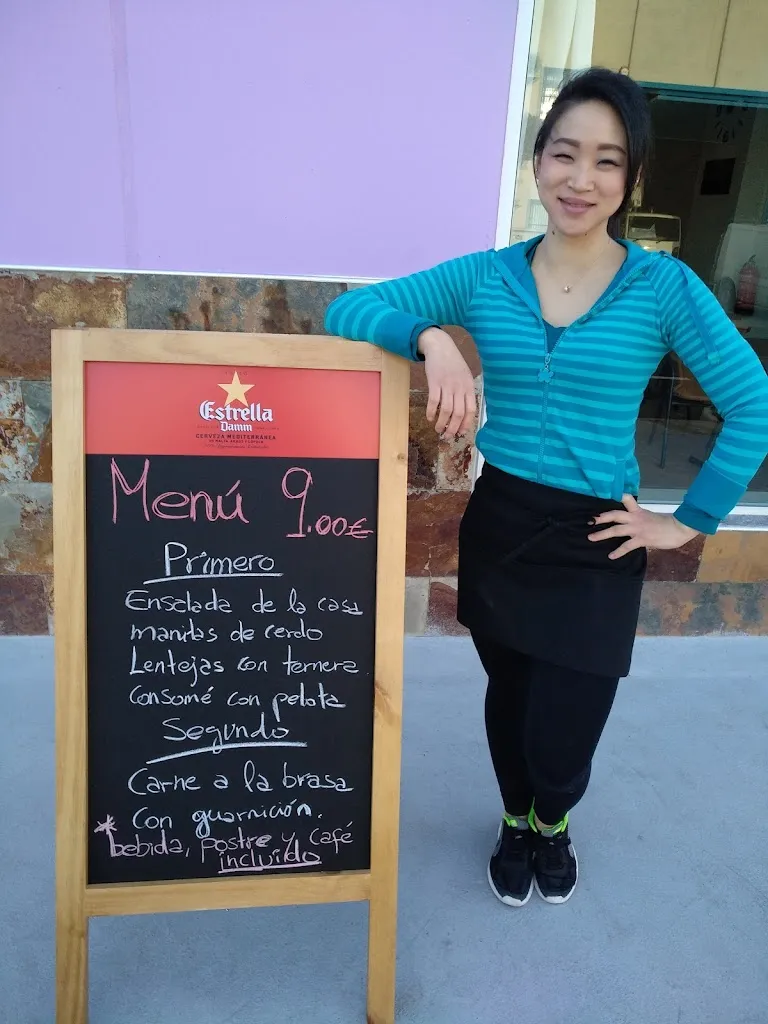 Estrella
Damm
CERVEZA MEDITERRÁNEA
Menú 9.00€
Primero
Ensalada de la casa
manitas de cerdo
Lentejas con ternera
Consomé con pelota
Segundo
Carne a la brasa
con guarnición.
*bebida, postre y café
incluido